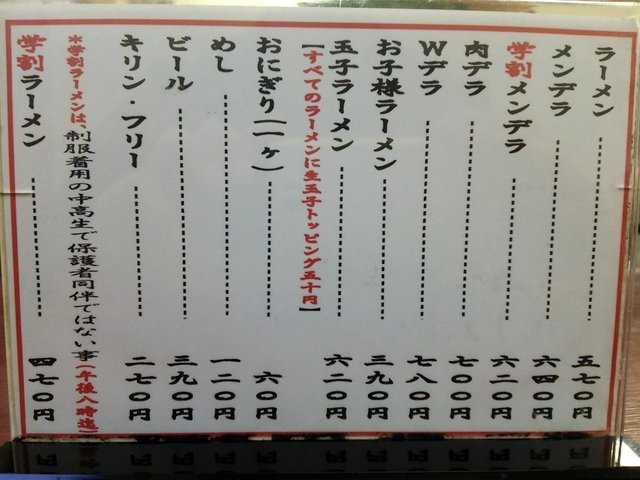 ラーメン 五七〇円
メンデラ 六四〇円
学割メンデラ 六二〇円
肉デラ 七〇〇円
Wデラ 七八〇円
お子様ラーメン 三九〇円
玉子ラーメン 六二〇円
【すべてのラーメンに生玉子トッピング五十円】
おにぎり(一ヶ) 六〇円
めし 一二〇円
ビール 三九〇円
キリン・フリー 二七〇円
*学割ラーメンは、制服着用の中高生で保護者同伴ではない事(午後八時迄)
学割ラーメン 四七〇円